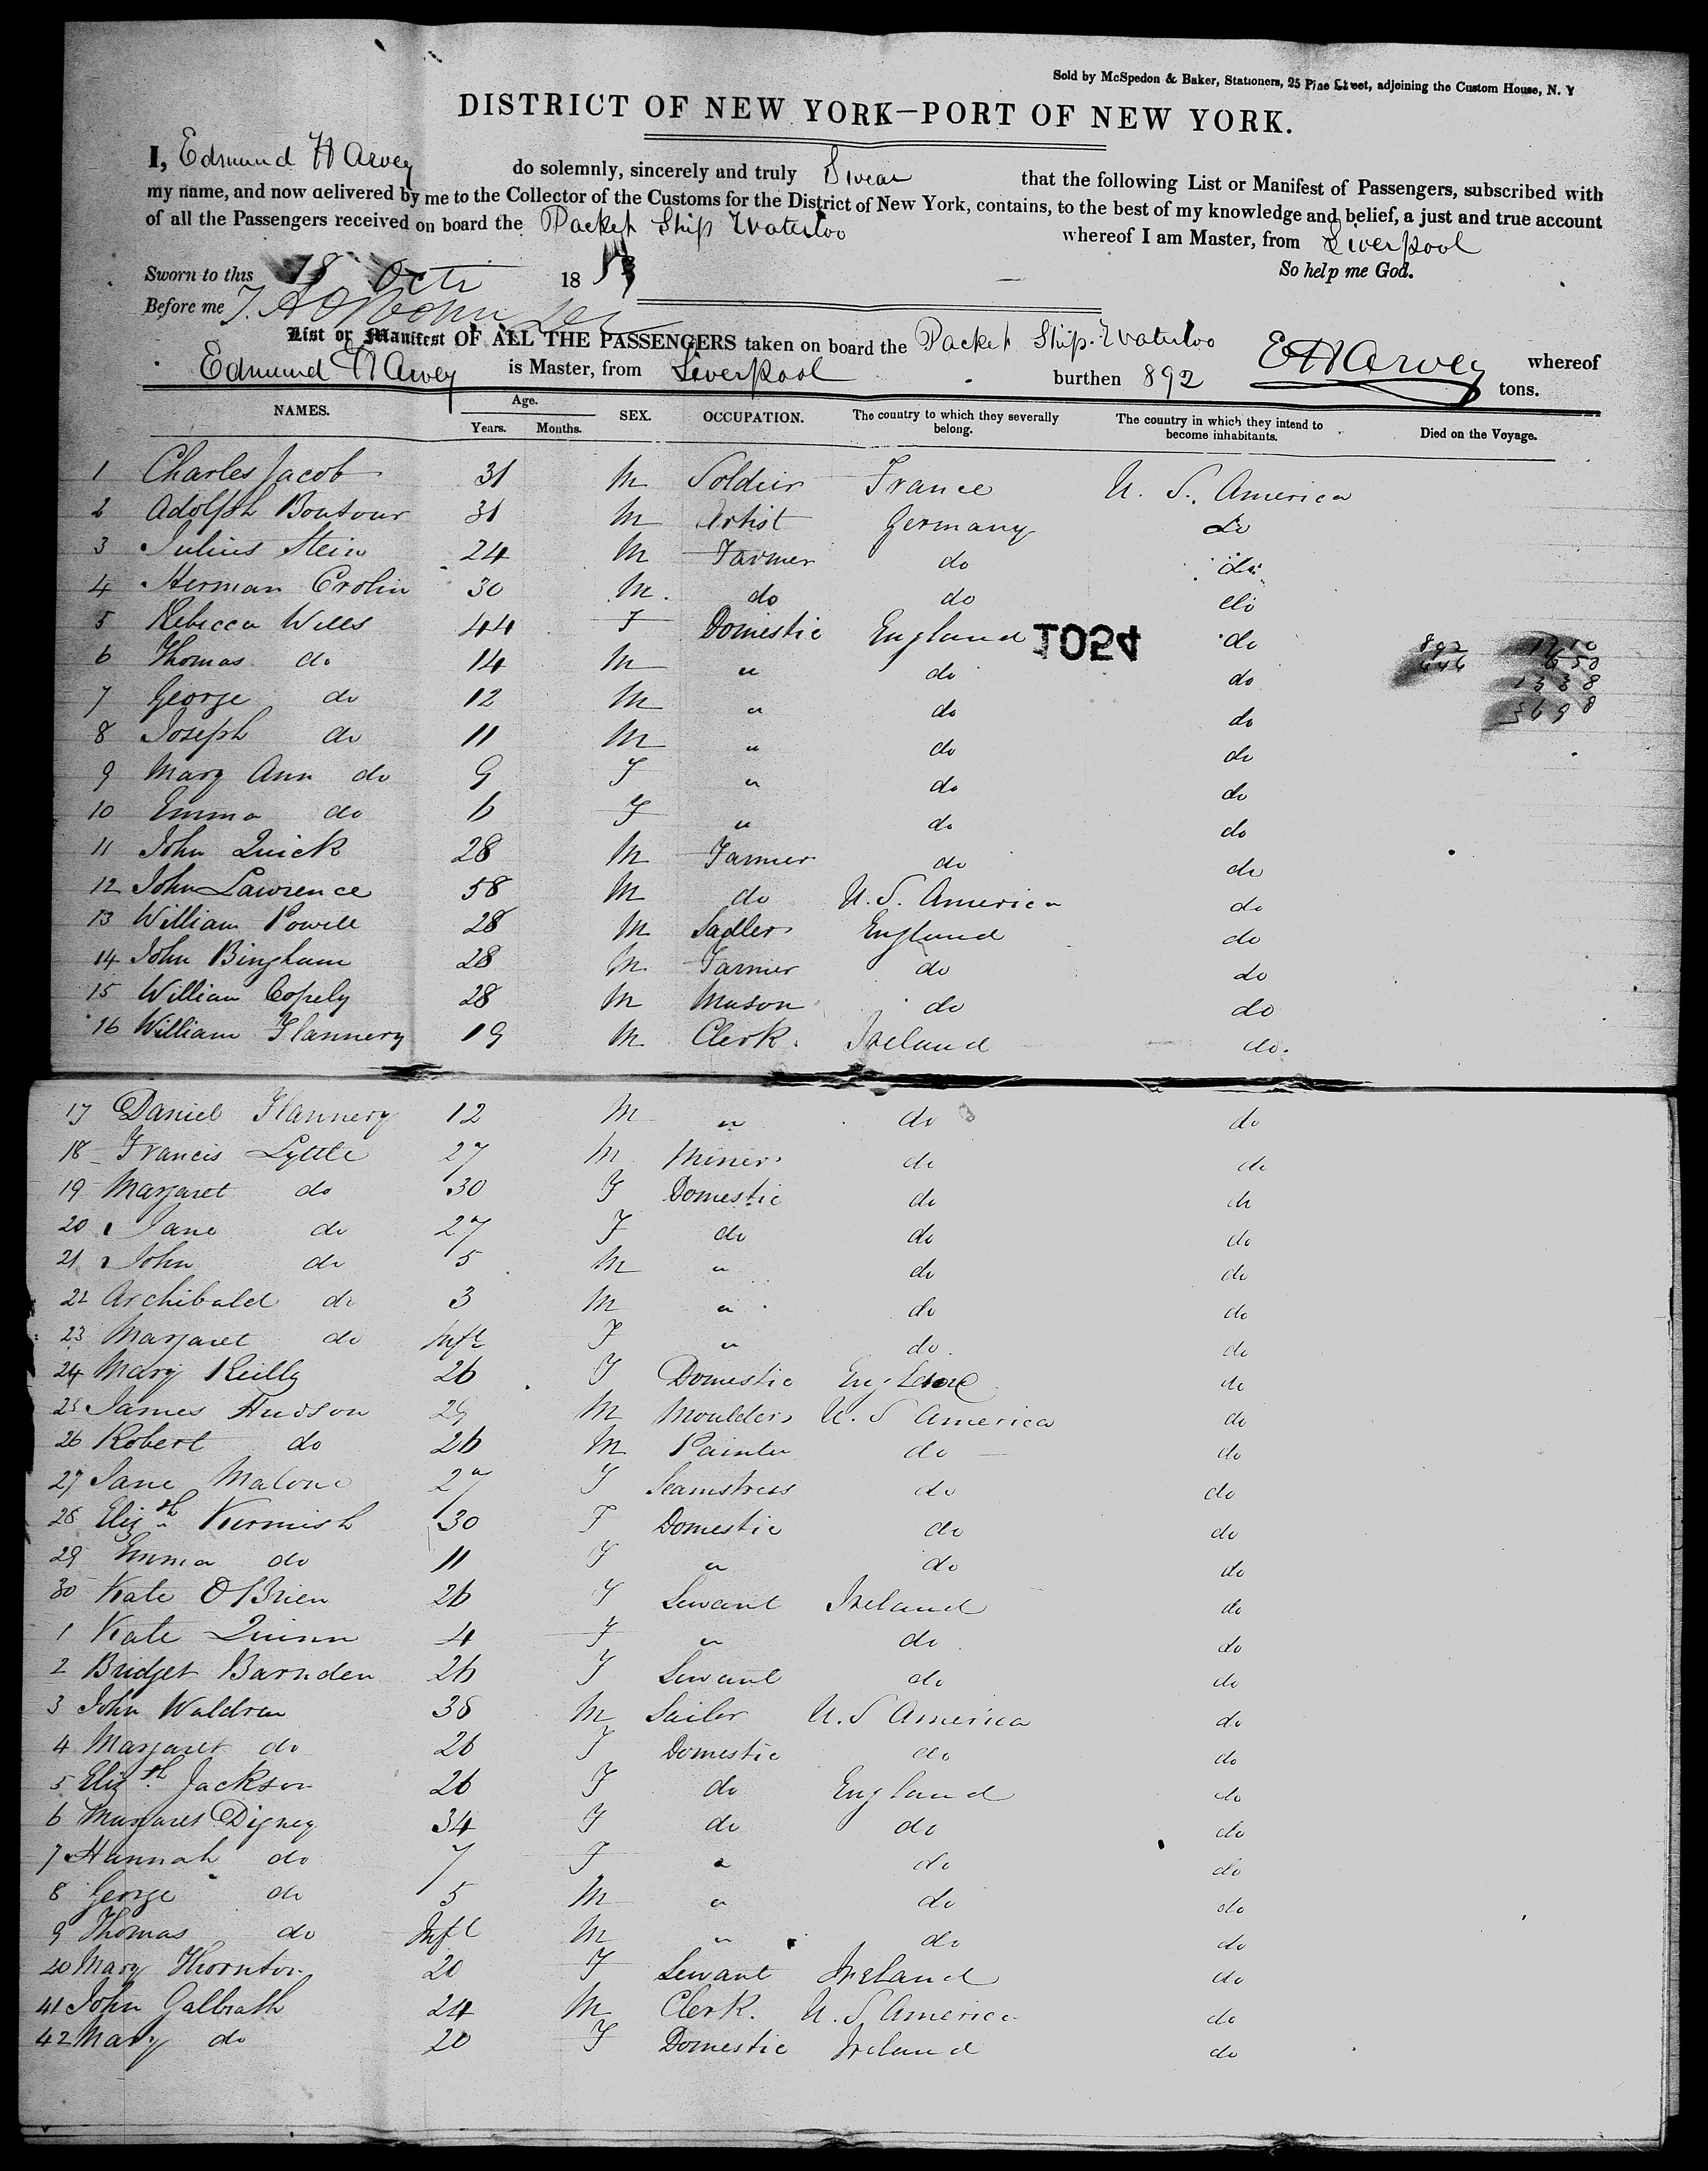 Sold by McSpedon & Baker, Stationers, 25 Pine Street, adjoining the Custom House, N. Y
DISTRICT OF NEW YORK—PORT OF NEW YORK.
I, Edmund Harvey do solemnly, sincerely and truly Swear that the following List or Manifest of Passengers, subscribed with
my name, and now delivered by me to the Collector of the Customs for the District of New York, contains, to the best of my knowledge and belief, a just and true account
of all the Passengers received on board the Packet Ship Waterloo whereof I am Master, from Liverpool
So help me God.
Sworn to this 18 Octr 18
Before me
List or Manifest OF ALL THE PASSENGERS taken on board the Packet Ship Waterloo whereof
EHarvey
Edmund Harvey is Master, from Liverpool burthen 892 tons.
NAMES. Age. Years. Months. SEX. OCCUPATION. The country to which they severally belong. The country in which they intend to become inhabitants. Died on the Voyage.
1 Charles Jacob 31 M Soldier France U. S. America
2 Adolph 31 M Artist Germany Do
3 Julius Stein 24 M Farmer do do
4 Herman Crolin 30 M. do do do
5 Rebecca Wells 44 F Domestic England do
1054
6 Thomas do 14 M " do do
7 George do 12 M " do do
8 Joseph do 11 M " do do
9 Mary Ann do 9 F " do do
10 Emma do 6 F " do do
11 John Quick 28 M Farmer do do
12 John Lawrence 58 M do U. S. America do
13 William Powell 28 M Sadler England do
14 John Bingham 28 M Farmer do do
15 William Copely 28 M Mason do do
16 William Flannery 19 M Clerk. Ireland do.
17 Daniel Flannery 12 M " do do
18 Francis Lyttle 27 M Miner do do
19 Margaret do 30 F Domestic do do
20 Jane do 27 F do do do
21 John do 5 M " do do
22 Archibald do 3 M " do do
23 Margaret do Inft F " do do
24 Mary Reilly 26 F Domestic England do
25 James Hudson 29 M Moulder U. S America do
26 Robert do 26 M Painter do do
27 Jane Malone 27 F Seamstress do do
28 Elizth Kermish 30 F Domestic do do
29 Emma do 11 F " do do
30 Kate O'Brien 26 F Servant Ireland do
1 Kate Quinn 4 F " do do
2 Bridget Barnden 26 F Servant do do
3 John Waldron 38 M Sailor U. S America do
4 Margaret do 26 F Domestic do do
5 Elizth Jackson 26 F do England do
6 Margaret Digney 34 F do do do
7 Hannah do 7 F " do do
8 George do 5 M " do do
9 Thomas do Inft M " do do
20 Mary Thornton 20 F Servant Ireland do
41 John Galbrath 24 M Clerk. U. S. America do
42 Mary do 20 F Domestic Ireland do